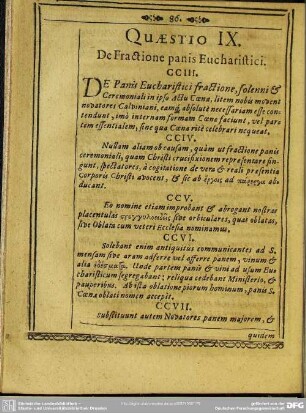 86.
QUÆSTIO IX.
De Fractione panis Eucharistici.
CCIII.
DE Panis Eucharistici fractione, solenni &
Ceremoniali in ipso actu Cœnæ, litem nobis movent
novatores Calviniani, eamq́; absolutè necessariam esse con-
tendunt, imò internam formam Cœnæ faciunt, vel par-
tem essentialem, sine qua Cœna ritè celebrari nequeat.
CCIV.
Nullam aliam ob causam, quàm ut fractione panis
ceremoniali, quam Christi crucifixionem repræsentare fin-
gunt, spectatores, à cogitatione de vera & reali præsentia
Corporis Christi avocent, & sic ab
ducant.
CCV.
Eo nomine etiam improbant & abrogant nostras
placentulas sive orbiculares, quas oblatas,
sive Oblata cum veteri Ecclesia nominamus,
CCVI.
Solebant enim antiquitus communicantes ad S.
mensam sive aram adferre vel offerre panem, vinum &
alia Unde partem panis & vini ad usum Eu-
charisticum segregabant; reliqua cedebant Ministerio, &
pauperibus. Ab ista oblatione piorum hominum, panis S.
Cœnæ oblati nomen accepit.
CCVII.
Substituunt autem Novatores panem majorem, &
quidem